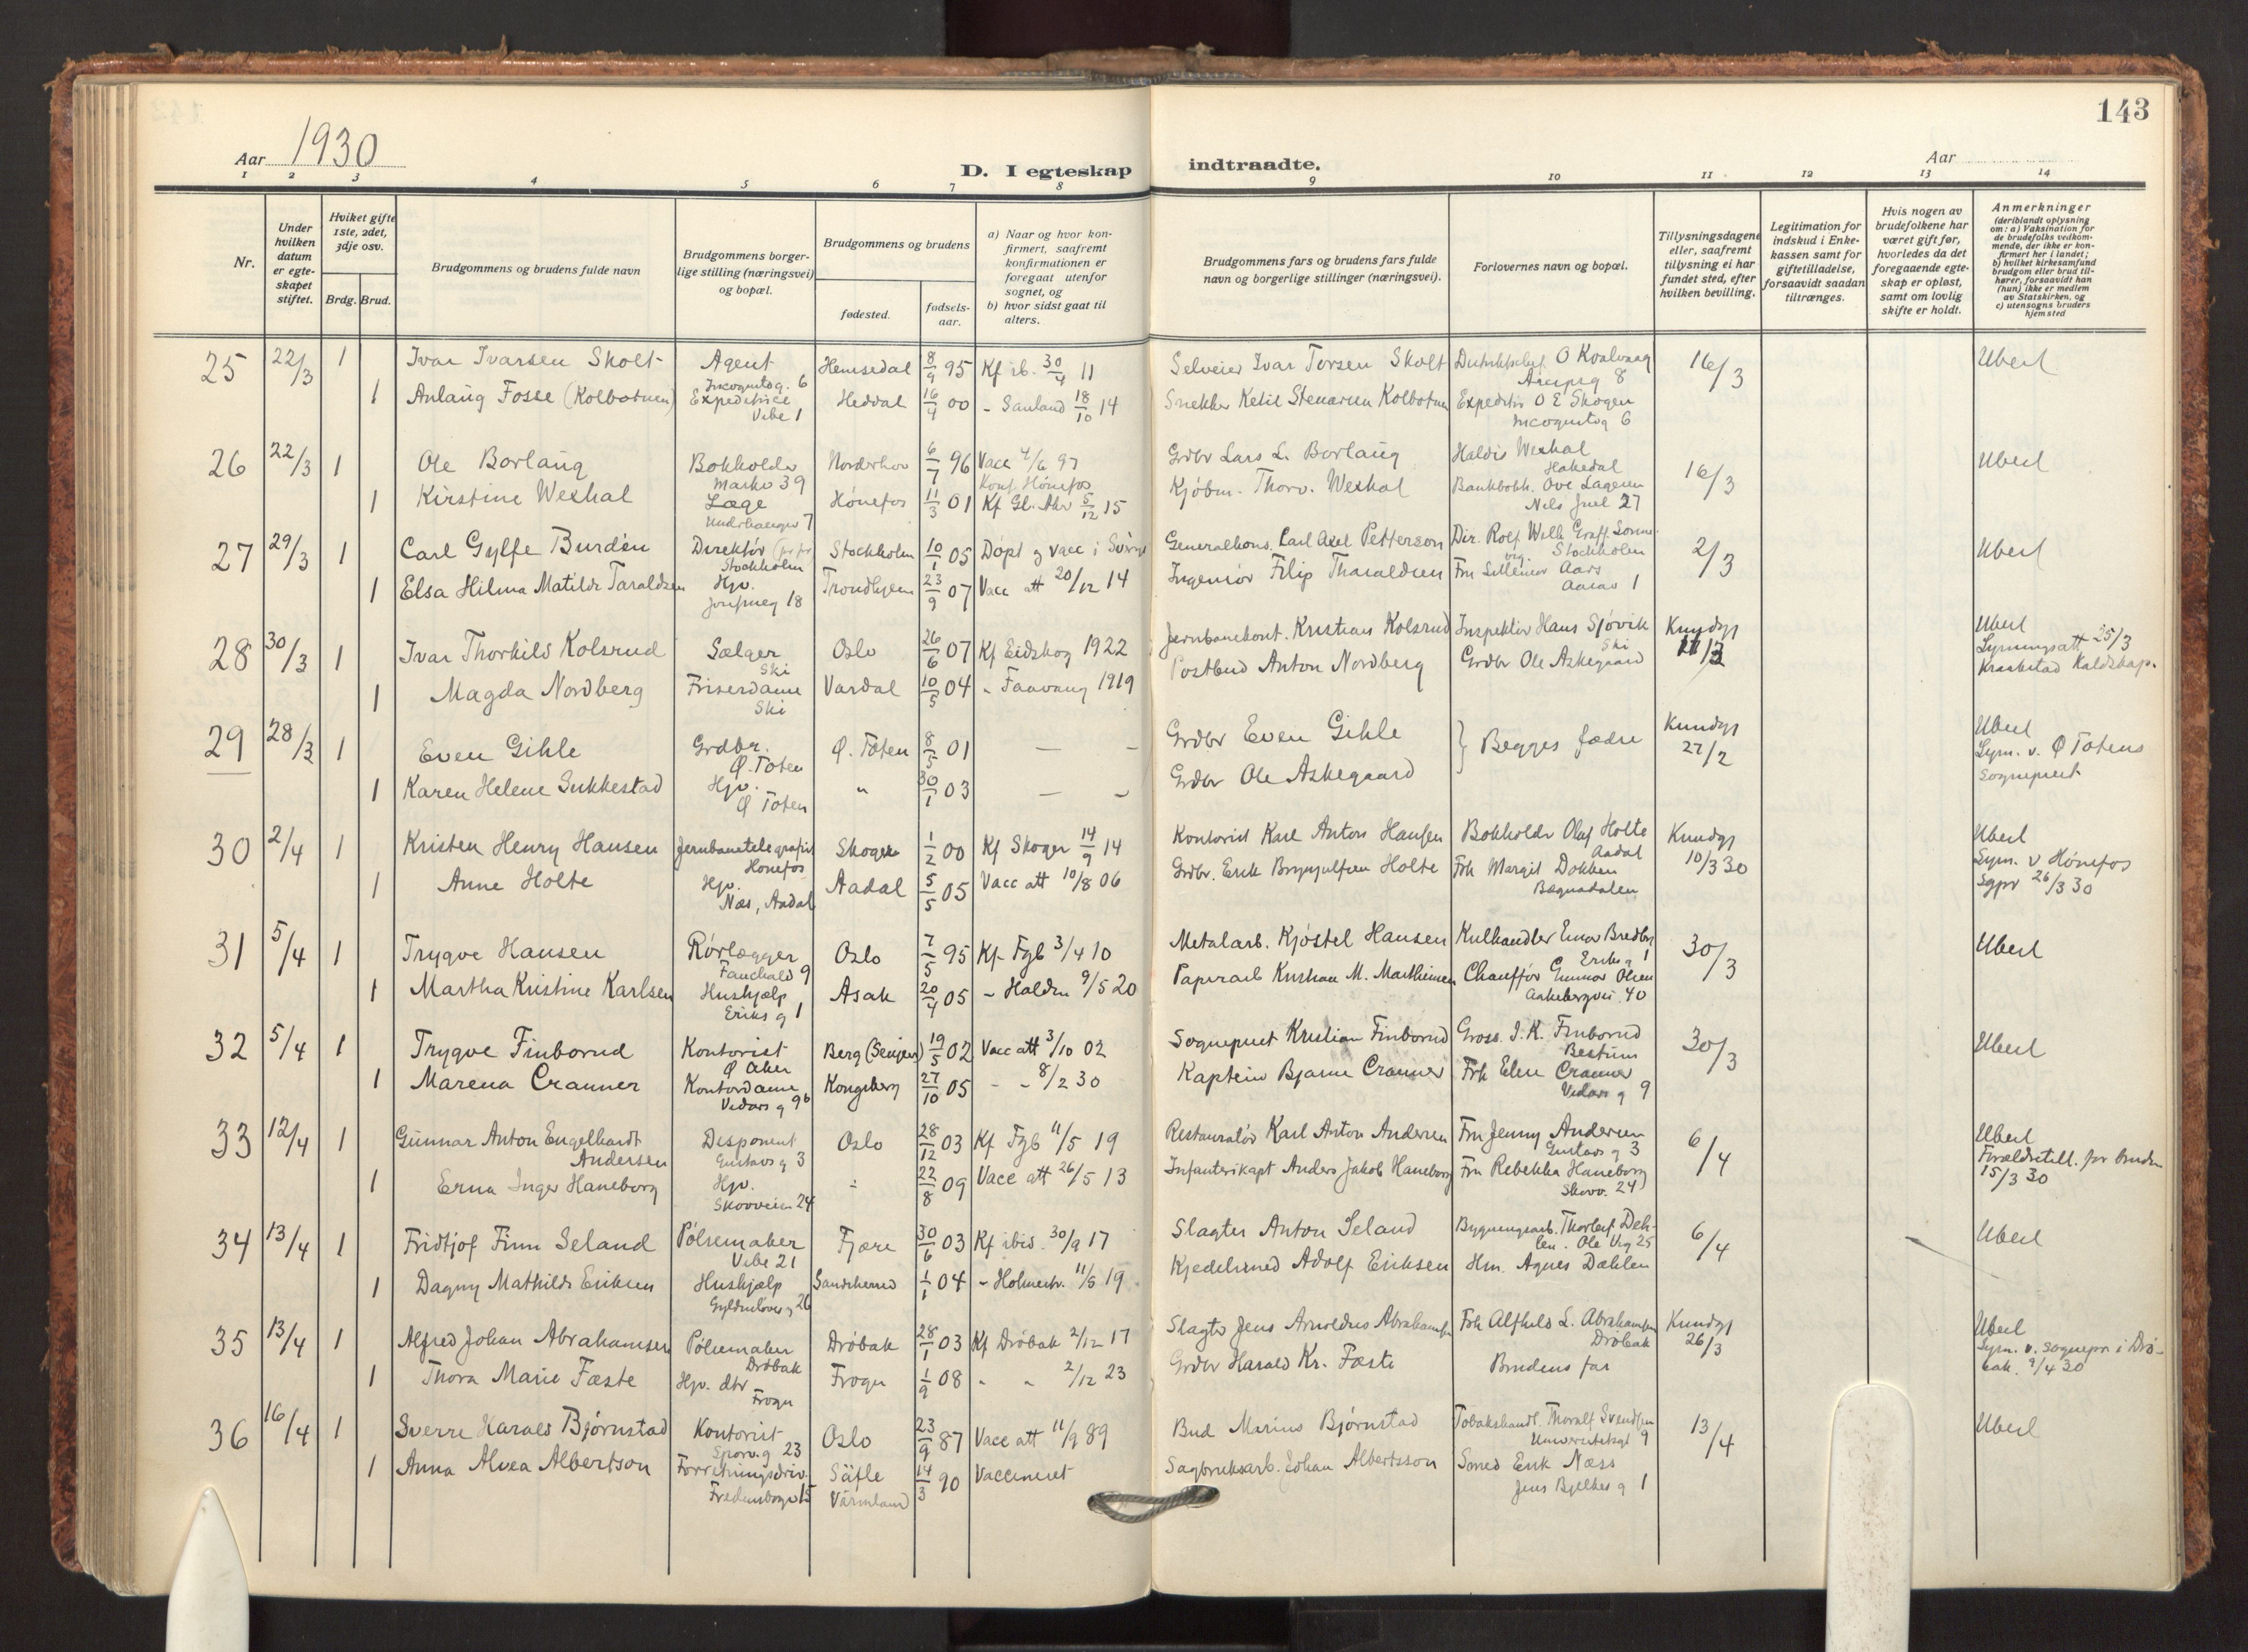 143
Aar 1930
D. I egteskap indtraadte.
Aar
1 2 3 4 5 6 7 8 9 10 11 12 13 14
Nr.
Under hvilken datum er egteskapet stiftet.
Hviket gifte 1ste, 2det, 3dje osv.
Brdg. Brud.
Brudgommens og brudens fulde navn
Brudgommens borgerlige stilling (næringsvei) og bopæl.
Brudgommens og brudens
fødested.
fødselsaar.
a) Naar og hvor konfirmert, saafremt konfirmationen er foregaat utenfor sognet, og
b) hvor sidst gaat til alters.
Brudgommens fars og brudens fars fulde navn og borgerlige stillinger (næringsvei).
Forlovernes navn og bopæl.
Tillysningsdagene eller, saafremt tillysning ei har fundet sted, efter hvilken bevilling.
Legitimation for indskud i Enkekassen samt for giftetilladelse, forsaavidt saadan tiltrænges.
Hvis nogen av brudefolkene har været gift før, hvorledes da det foregaaende egteskap er opløst, samt om lovlig skifte er holdt.
Anmerkninger (deriblandt oplysning om: a) Vaksination for de brudefolks vedkommende, der ikke er konfirmert her i landet; b) hvilket kirkesamfund brudgom eller brud tilhører, forsaavidt han (hun) ikke er medlem av Statskirken, og c) utensogns bruders hjemsted
25 22/3 1 Ivar Ivarsen Skolt Agent Incognitog. 6 Hemsedal 8/9 95 Kf ib. 30/4 11 Selveier Ivar Torsen Skolt O Kvalvaag 8 16/3 Uberl
1 Anlaug Fosse (Kolbotnen) Expeditrice Vibe 1 Heddal 16/4 00 - Sauland 18/10 14 Snekker Ketil Stenarsen Kolbotnen Expeditør O E Skogen Incognitog 6
26 22/3 1 Ole Borlaug Bokholder Markv 39 Norderhov 6/7 96 Vacc 4/6 97 Konf. Hønefos Grdbr Lars L. Borlaug Haldis Weshal Hakedal 16/3 Uberl
1 Kirstine Weshal Læge Underhaugsv 7 Hønefos 11/3 01 Kf Gl. Aker 5/12 15 Kjøbm. Thorv. Weshal Bankbokh. Ove Lagesen Nils Juel 27
27 29/3 1 Carl Gylfe Burdén Direktør Stockholm Stockholm 10/1 05 Døpt og vacc i Generalkons. Carl Axel Petterson Dir. Rolf Wilh Graff Stockholm 2/3 Uberl
1 Elsa Hilma Matilde Taraldsen Hjv. 18 Trondhjem 23/9 07 Vacc att 20/12 14 Ingeniør Filip Tharaldsen Fru Aars Aarsv 1
28 30/3 1 Ivar Thorkils Kolsrud Sælger Ski Oslo 26/6 07 Kf Eidskog 1922 Jernbanekont. Kristian Kolsrud Inspektør Hans Sjøvik Ski Kundgj 11/3 Uberl Lysningsatt 25/3 Kraakstad
1 Magda Nordberg Friserdame Ski Vardal 10/5 04 - Faavang 1919 Postbud Anton Nordberg Grdbr Ole Askegaard
29 28/3 1 Even Gihle Grdbr. Ø. Toten Ø. Toten 8/5 01 — Grdbr Even Gihle } Begges fædre Kundgj 27/2 Uberl Lysn. v. Ø Totens sogneprest
1 Karen Helene Sukkestad Hjv. Ø Toten " 30/1 03 — Grdbr Ole Askegaard
30 2/4 1 Kristen Henry Hansen Jernbanetelegrafist Hønefos Skoger 1/2 00 Kf Skoger 14/9 14 Kontorist Karl Anton Hansen Bokholdr Olaf Holte Aadal Kundgj 10/3 30 Uberl Lysn. v Hønefos Sgpr 26/3 30
1 Anne Holte Hjv. Næs, Aadal Aadal 5/5 05 Vacc att 10/8 06 Grdbr. Erik Brynjulfsen Holte Frk Margit Dokken Begnadalen
31 5/4 1 Trygve Hansen Rørlægger Fauchalds 9 Oslo 7/5 95 Kf Fgb 3/4 10 Metalarb. Kjøstel Hansen Kulhandler Einar Bredby Eriks g 1 30/3 Uberl
1 Martha Kristine Karlsen Hushjælp Eriks g 1 Asak 20/4 05 - Halden 9/5 20 Papirarb Kristian M. Chauffør Gunnar Olsen Aakebergvei. 40
32 5/4 1 Trygve Finborud Kontorist Ø Aker Berg (Senjen) 19/5 02 Vacc att 3/10 02 Sogneprest Kristian Finborud Gross. J. K. Finborud Bestum 30/3 Uberl
1 Marena Cranner Kontordame Vidars g 9b Kongsberg 27/10 05 - - 8/2 30 Kaptein Bjarne Cranner Frk Elise Cranner Vidars g 9
33 12/4 1 Gunnar Anton Engelhardt Andersen Disponent Gustavs g 3 Oslo 28/12 03 Kf Fgb 11/5 19 Restauratør Karl Anton Andersen Fru Jenny Andersen Gustavs g 3 6/4 Uberl Forældretill. for bruden 15/3 30
1 Erna Inger Haneborg Hjv. Skovveien 24 " 22/8 09 Vacc att 26/5 13 Infanterikapt Anders Jakob Haneborg Fru Rebekka Haneborg Skovv. 24
34 13/4 1 Fridtjof Finn Seland Pølsemaker Vibe 21 Fjære 30/6 03 Kf ibid. 30/9 17 Slagter Anton Seland Bygningsarb. Thorleif Dehlen. Ole Vig 25 6/4 Uberl
1 Dagny Mathilde Eriksen Hushjælp Gyldenløves g 26 Sandeherred 1/1 04 - Holmestr. 11/5 19. Kjedelsmed Adolf Eriksen Hm. Agnes Dæhlen
35 13/4 1 Alfred Johan Abrahamsen Pølsemaker Drøbak Drøbak 28/1 03 Kf Drøbak 2/12 17 Slagter Jens Arnoldus Abrahamsen Frk Alfhild L. Abrahamsen Drøbak Kundgj 26/3 Uberl Lysn. v. sognepr i Drøbak. 9/4 30
1 Thora Marie Fæste Hjv. dtr Frogn Frogn 1/9 08 - - 2/12 23 Grdbr Harald Kr. Fæste Brudens far
36 16/4 1 Sverre Harald Bjørnstad Kontorist Sporv.g 23 Oslo 23/9 87 Vacc att 11/9 89 Bud Marius Bjørnstad Tobakshandl. Thoralf Svendsen Universitetsgt 9 13/4 Uberl
1 Anna Alvea Albertson Forretningsdriv. Fredensborgv 15 Säfle Värmland 14/3 90 Vaccineret Sagbruksarb. Johan Albertsson Smed Erik Næss Jens Bjelkes g 1